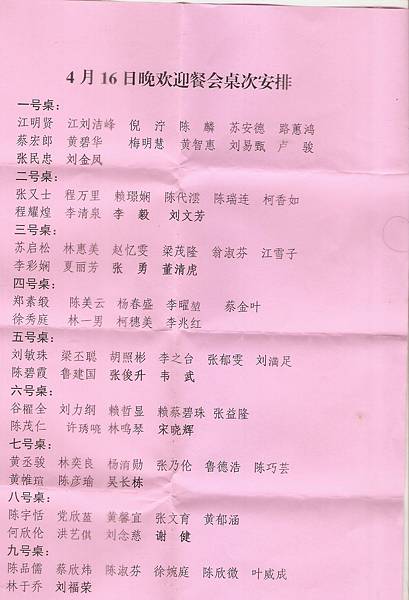 4月16日晚欢迎餐会桌次安排
一号桌：
江明贤 江刘洁峰 倪泞 陈麟 苏安德 路蕙鸿
蔡宏郎 黄碧华 梅明慧 黄智惠 刘易甄 卢骏
张民忠 刘金凤
二号桌：
张又士 程万里 赖璟娴 陈代澐 陈瑞连 柯香如
程耀煌 李清泉 李毅 刘文芳
三号桌：
苏启松 林惠美 赵忆雯 梁茂隆 翁淑芬 江雪子
李彩娴 夏丽芳 张勇 董清虎
四号桌：
郑素缎 陈美云 杨春盛 李曜堃 蔡金叶
徐秀庭 林一男 柯穗美 李兆红
五号桌：
刘敏珠 梁丕聪 胡照彬 李之台 张郁雯 刘满足
陈碧霞 鲁建国 张俊升 韦武
六号桌：
谷櫂全 刘力纲 赖哲显 赖蔡碧珠 张益隆
陈茂仁 许琇晓 林鸣琴 宋晓辉
七号桌：
黄丞骏 林奕良 杨洧勋 张乃伦 鲁德浩 陈巧芸
黄帷瑄 陈彦瑜 吴长栋
八号桌：
陈宇恬 党欣蓝 黄馨宜 张文育 黄郁涵
何欣伦 洪艺倛 刘念慈 谢健
九号桌：
陈品儒 蔡欣炜 陈淑芬 徐婉庭 陈欣微 叶威成
林于乔 刘福荣